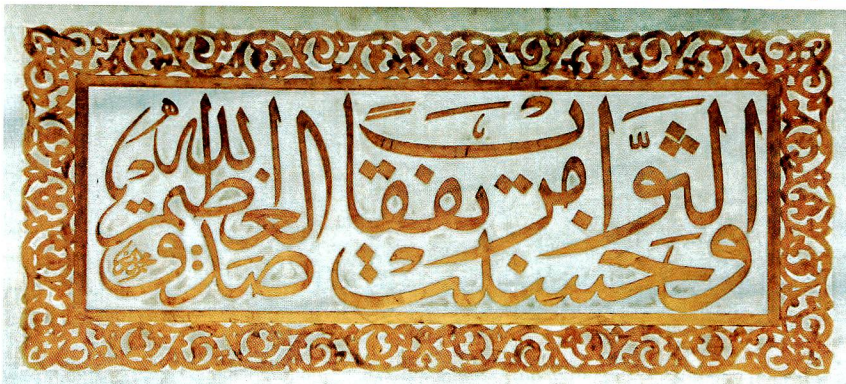 الثواب وحسنت مرتفقاً صدق الله العظيم